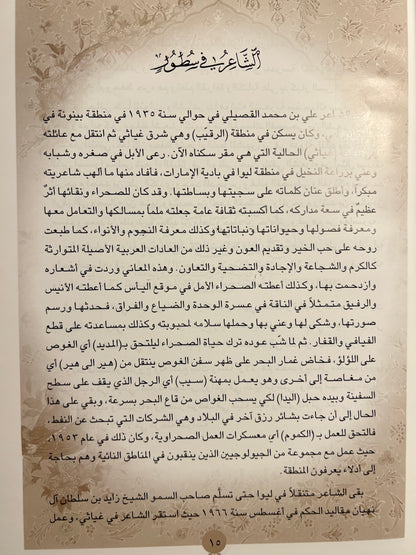 الشاعر في سطور
الشاعر علي بن محمد القصيلي في حوالي سنة ١٩٣٥ في منطقة بينونة في
وكان يسكن في منطقة (الرقيب) وهي شرق غياثي ثم انتقل مع عائلته
(غياثي) الحالية التي هي مقر سكناه الآن. رعى الأبل في صغره وشبابه
وعني بزراعة النخيل في منطقة ليوا في بادية الإمارات، فأفاد منها ما ألهب شاعريته
مبكراً، وأطلق عنان كلماته على سجيتها وبساطتها. وقد كان للصحراء ونقائها أثر
عظيم في سعة مداركه، كما أكسبته ثقافة عامة جعلته ملماً بمسالكها والتعامل معها
ومعرفة فصولها وحيواناتها ونباتاتها وكذلك معرفة النجوم والأنواء، كما طبعت
روحه على حب الخير وتقديم العون وغير ذلك من العادات العربية الأصيلة المتوارثة
كالكرم والشجاعة والإجادة والتضحية والتعاون. وهذه المعاني وردت في أشعاره
وازدحمت بها، وكذلك أعطته الصحراء الأمل في موقع الياس كما أعطته الأنيس
والرفيق متمثلاً في الناقة في عسرة الوحدة والضياع والفراق، فحدثها ورسم
صورتها، وشكى لها وعني بها وحملها سلامه لمحبوبته وكذلك بمساعدته على قطع
الفيافي والقفار. ثم لما شب عوده ترك حياة الصحراء ليلتحق بـ(المديد) أي الغوص
على اللؤلؤ، فخاض غمار البحر على ظهر سفن الغوص ينتقل من (هير الى هير) أي
من مغاصة إلى أخرى وهو يعمل بمهنة (سيب) أي الرجل الذي يقف على سطح
السفينة وبيده حبل (اليدا) لكي يسحب الغواص من قاع البحر بسرعة، وبقي على هذا
الحال إلى أن جاءت بشائر رزق آخر في البلاد وهي الشركات التي تبحث عن النفط،
فالتحق للعمل بـ (الكموم) أي معسكرات العمل الصحراوية، وكان ذلك في عام ١٩٥٣،
حيث عمل مع مجموعة من الجيولوجيين الذين ينقبون في المناطق النائية وهم بحاجة
إلى أدلاء يعرفون المنطقة.
بقى الشاعر متنقلاً في ليوا حتى تسلّم صاحب السمو الشيخ زايد بن سلطان آل
نهيان مقاليد الحكم في أغسطس سنة ١٩٦٦ حيث استقر الشاعر في غياثي، وعمل
١٥